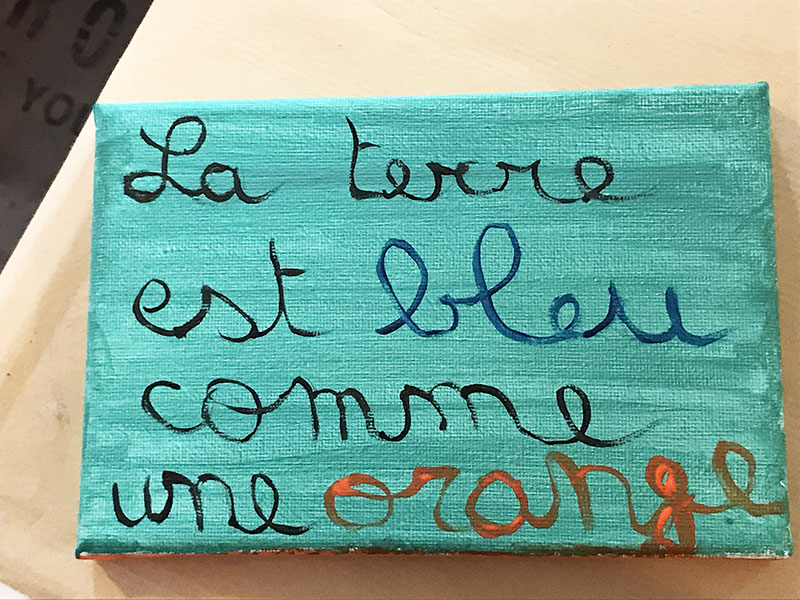 La terre
est bleu
comme
une orange
YOU